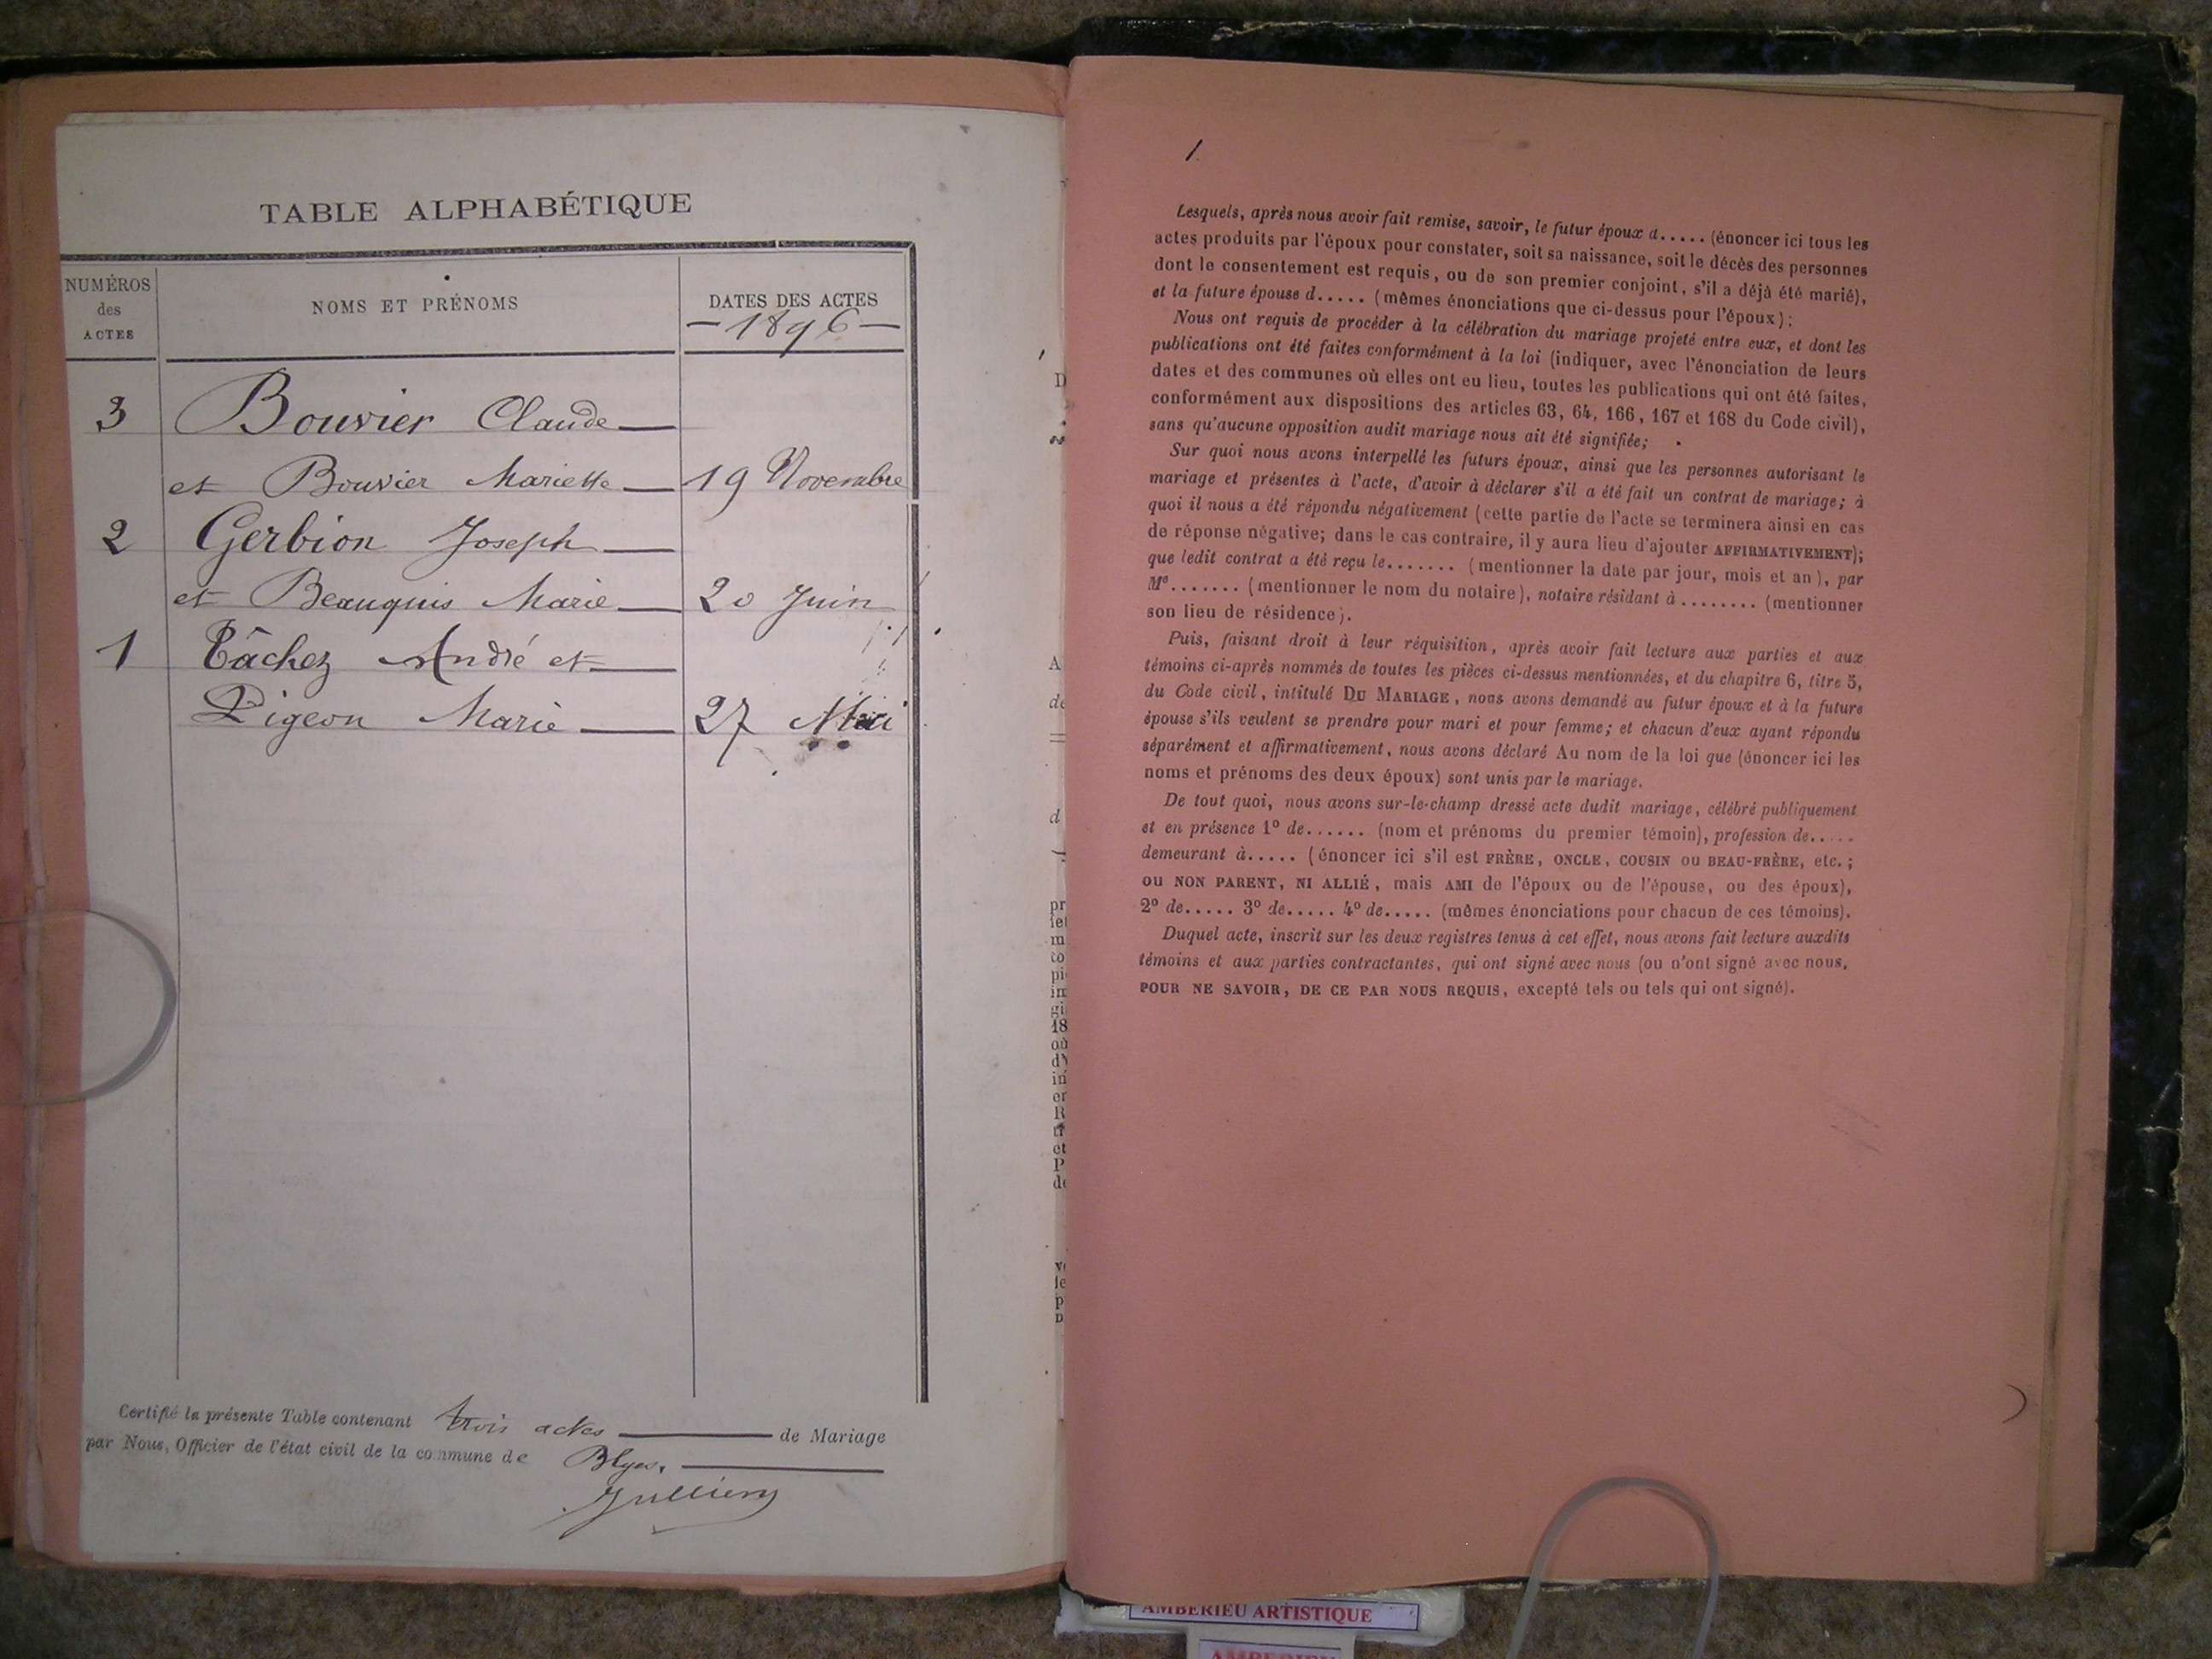 TABLE ALPHABÉTIQUE
NUMÉROS
des
ACTES
NOMS ET PRÉNOMS
DATES DES ACTES
— 1896 —
3 Bouvier Claude
et Bouvier Mariette 19 Novembre
2 Gerbion Joseph
et Beauquis Marie 20 Juin
1 Tâchez André et
Pigeon Marie 27 Mai
Certifié la présente Table contenant trois actes de Mariage
par Nous, Officier de l'état civil de la commune de Blyes,
Jullien
1.
Lesquels, après nous avoir fait remise, savoir, le futur époux d..... (énoncer ici tous les
actes produits par l'époux pour constater, soit sa naissance, soit le décès des personnes
dont le consentement est requis, ou de son premier conjoint, s'il a déjà été marié),
et la future épouse d..... (mêmes énonciations que ci-dessus pour l'époux);
Nous ont requis de procéder à la célébration du mariage projeté entre eux, et dont les
publications ont été faites conformément à la loi (indiquer, avec l'énonciation de leurs
dates et des communes où elles ont eu lieu, toutes les publications qui ont été faites,
conformément aux dispositions des articles 63, 64, 166, 167 et 168 du Code civil),
sans qu'aucune opposition audit mariage nous ait été signifiée;
Sur quoi nous avons interpellé les futurs époux, ainsi que les personnes autorisant le
mariage et présentes à l'acte, d'avoir à déclarer s'il a été fait un contrat de mariage; à
quoi il nous a été répondu négativement (cette partie de l'acte se terminera ainsi en cas
de réponse négative; dans le cas contraire, il y aura lieu d'ajouter AFFIRMATIVEMENT);
que ledit contrat a été reçu le....... (mentionner la date par jour, mois et an), par
Me....... (mentionner le nom du notaire), notaire résidant à ........ (mentionner
son lieu de résidence).
Puis, faisant droit à leur réquisition, après avoir fait lecture aux parties et aux
témoins ci-après nommés de toutes les pièces ci-dessus mentionnées, et du chapitre 6, titre 5,
du Code civil, intitulé DU MARIAGE, nous avons demandé au futur époux et à la future
épouse s'ils veulent se prendre pour mari et pour femme; et chacun d'eux ayant répondu
séparément et affirmativement, nous avons déclaré Au nom de la loi que (énoncer ici les
noms et prénoms des deux époux) sont unis par le mariage.
De tout quoi, nous avons sur-le-champ dressé acte dudit mariage, célébré publiquement
et en présence 1º de...... (nom et prénoms du premier témoin), profession de.....
demeurant à..... (énoncer ici s'il est FRÈRE, ONCLE, COUSIN ou BEAU-FRÈRE, etc.;
ou NON PARENT, NI ALLIÉ, mais AMI de l'époux ou de l'épouse, ou des époux),
2º de..... 3º de..... 4º de..... (mêmes énonciations pour chacun de ces témoins).
Duquel acte, inscrit sur les deux registres tenus à cet effet, nous avons fait lecture auxdits
témoins et aux parties contractantes, qui ont signé avec nous (ou n'ont signé avec nous,
POUR NE SAVOIR, DE CE PAR NOUS REQUIS, excepté tels ou tels qui ont signé).
AMBERIEU ARTISTIQUE